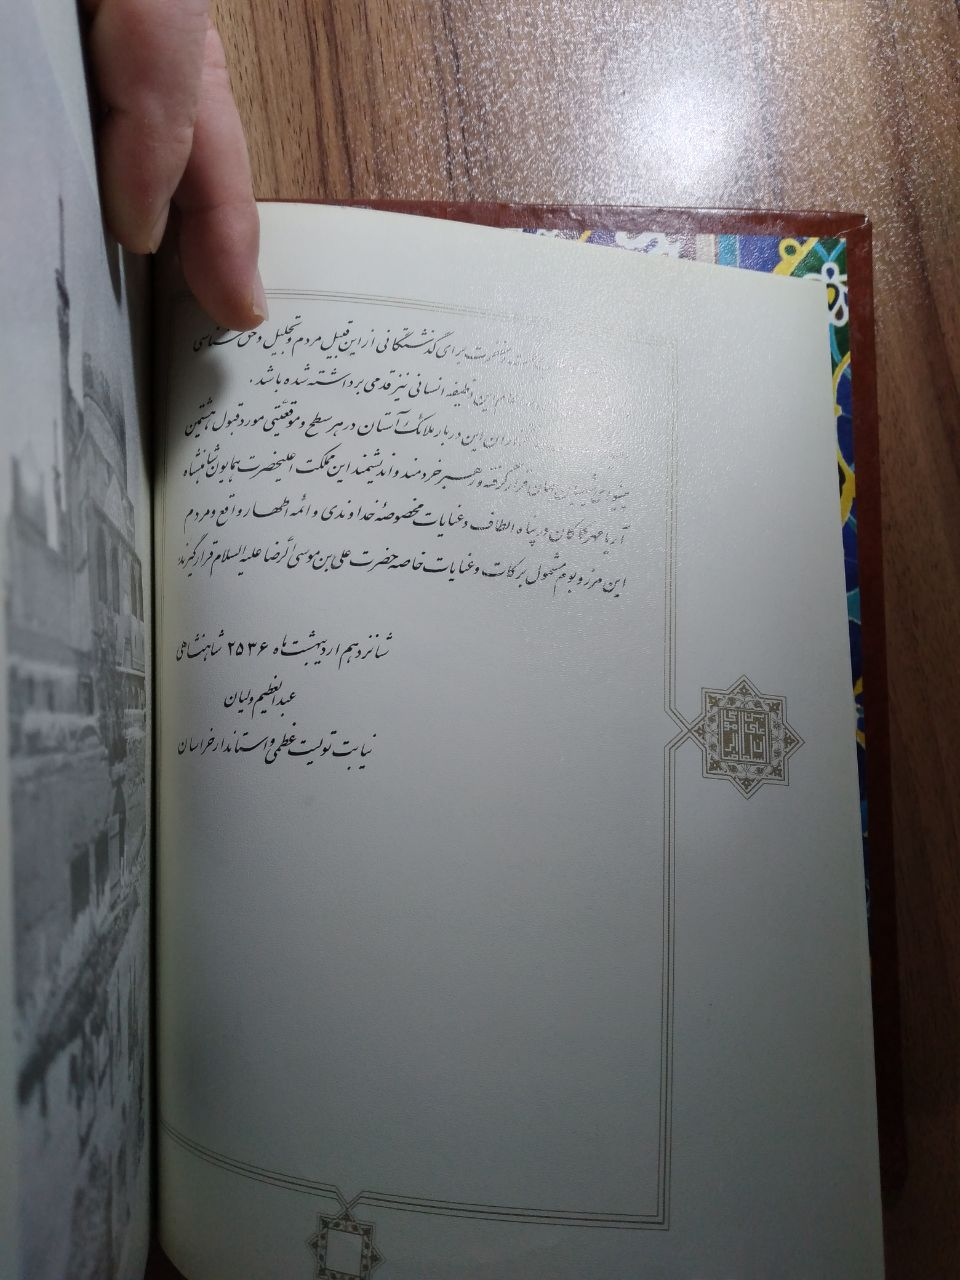 برای گذشتگانی از این قبیل مردم و تجلیل و حق شناسی
این وظیفه انسانی نیز قدمی برداشته شده باشد .
این دربار ملائک آستان در هر سطح و موقعیتی مورد قبول هشتمین
قرار گرفته و رهبر خردمند و اندیشمند این مملکت اعلیحضرت همایون شاهنشاه
آریامهر کماکان در پناه الطاف و عنایات مخصوصهٔ خداوندی و ائمه اطهار واقع و مردم
این مرز و بوم مشمول برکات و عنایات خاصه حضرت علی بن موسی الرضا علیه السلام قرار گیرند
شانزدهم اردیبهشت ماه ۲۵۳۶ شاهنشاهی
عبدالعظیم ولیان
نیابت تولیت عظمی و استاندار خراسان